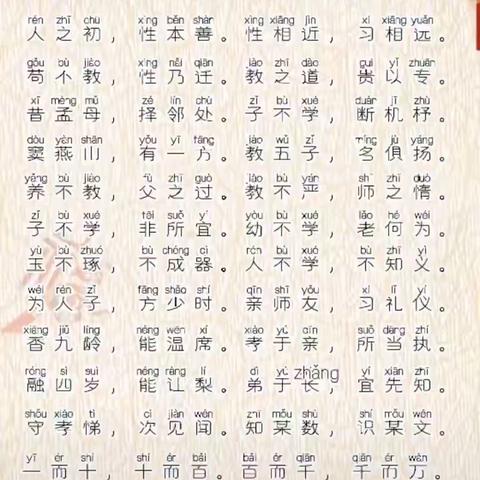 rén zhī chū xìng běn shàn xìng xiāng jìn xí xiāng yuǎn
人之初，性本善。性相近，习相远。
gǒu bù jiào xìng nǎi qiān jiào zhī dào guì yǐ zhuān
苟不教，性乃迁。教之道，贵以专。
xī mèng mǔ zé lín chù zǐ bù xué duàn jī zhù
昔孟母，择邻处。子不学，断机杼。
dòu yān shān yǒu yì fāng jiào wǔ zǐ míng jù yáng
窦燕山，有一方。教五子，名俱扬。
yǎng bù jiào fù zhī guò jiào bù yán shī zhī duò
养不教，父之过。教不严，师之惰。
zǐ bù xué fēi suǒ yí yòu bù xué lǎo hé wéi
子不学，非所宜。幼不学，老何为。
yù bù zhuó bù chéng qì rén bù xué bù zhī yì
玉不琢，不成器。人不学，不知义。
wéi rén zǐ fāng shào shí qīn shī yǒu xí lǐ yí
为人子，方少时。亲师友，习礼仪。
xiāng jiǔ líng néng wēn xí xiào yú qīn suǒ dāng zhí
香九龄，能温席。孝于亲，所当执。
róng sì suì néng ràng lí dì yú zhǎng yí xiān zhī
融四岁，能让梨。弟于长，宜先知。
shǒu xiào tì cì jiàn wén zhī mǒu shù shí mǒu wén
守孝悌，次见闻。知某数，识某文。
yī ér shí shí ér bǎi bǎi ér qiān qiān ér wàn
一而十，十而百。百而千，千而万。